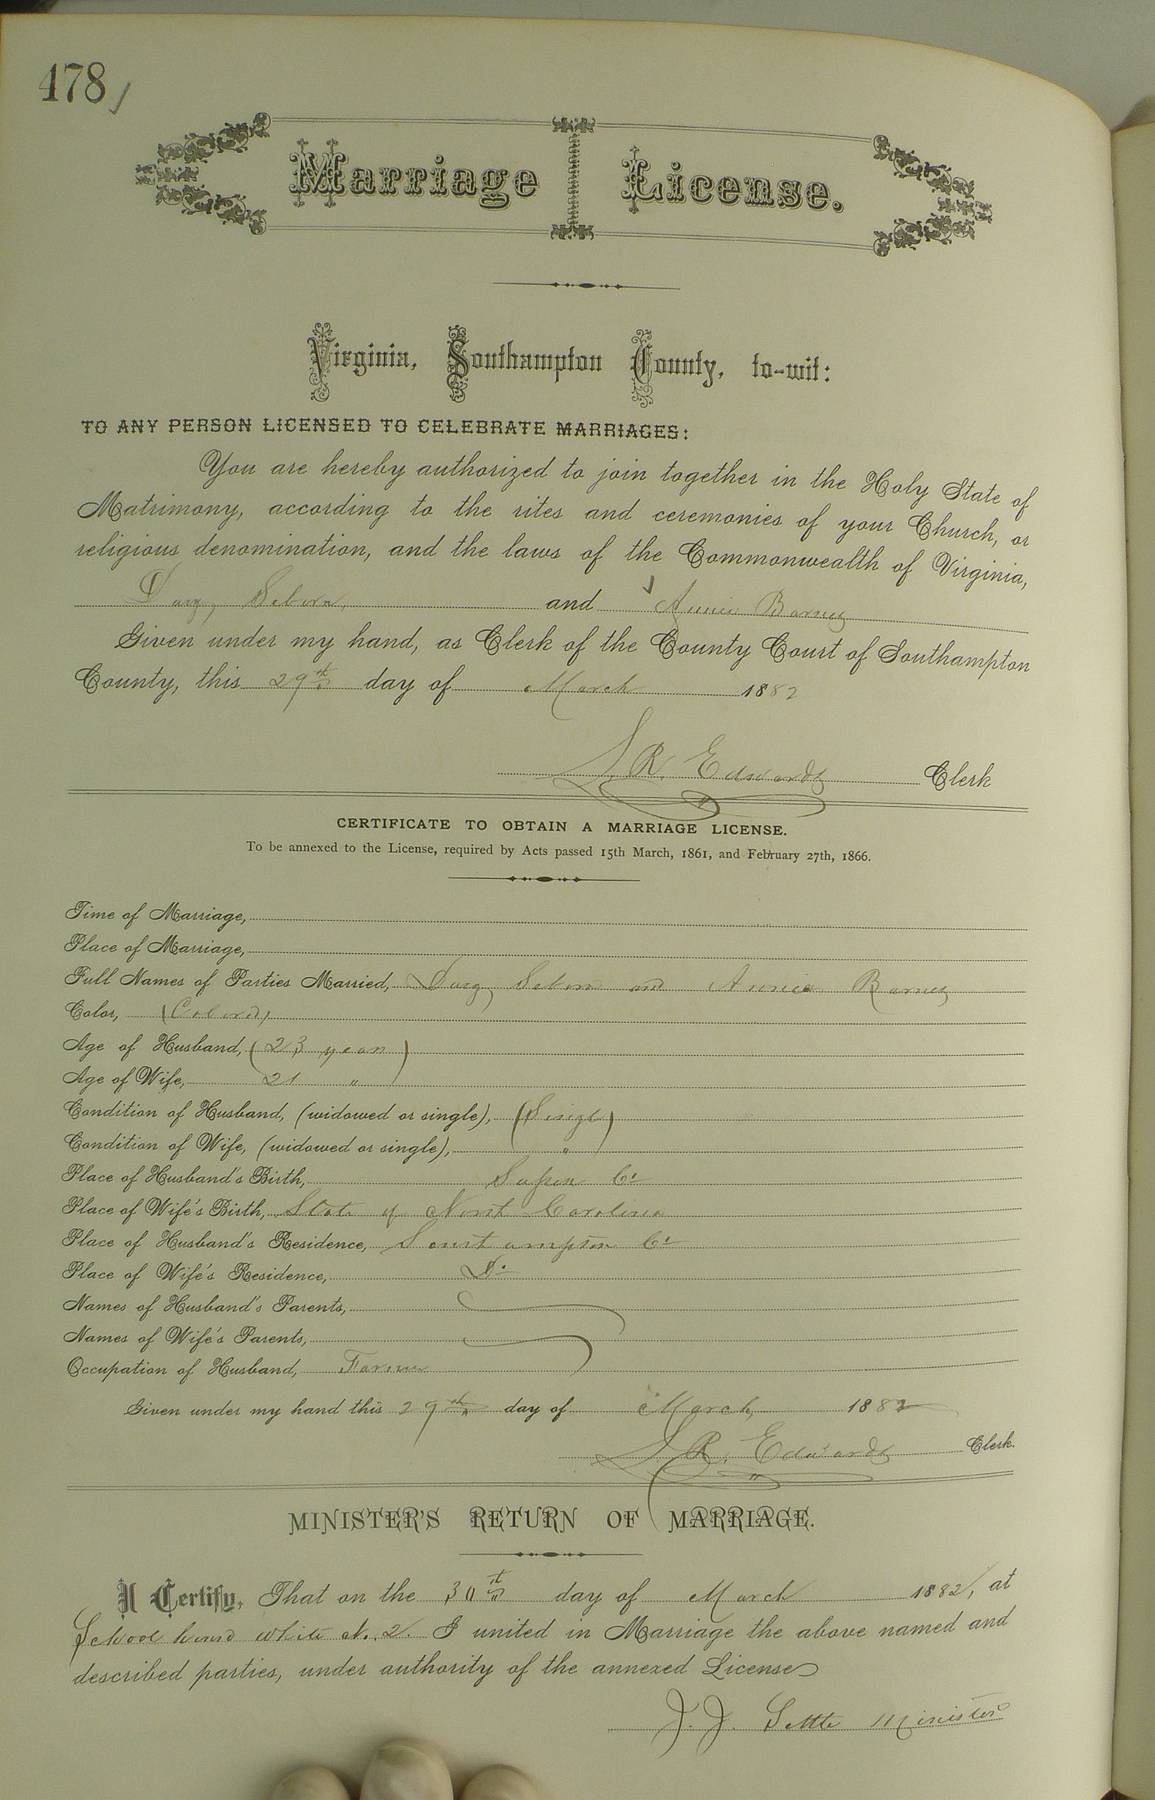 478
Marriage License.
Virginia, Southampton County, to-wit:
TO ANY PERSON LICENSED TO CELEBRATE MARRIAGES:
You are hereby authorized to join together in the Holy State of
Matrimony, according to the rites and ceremonies of your Church, or
religious denomination, and the laws of the Commonwealth of Virginia,
and Annie Barnes
Given under my hand, as Clerk of the County Court of Southampton
County, this 29th day of March 1882
L. R. Edwards Clerk
CERTIFICATE TO OBTAIN A MARRIAGE LICENSE.
To be annexed to the License, required by Acts passed 15th March, 1861, and February 27th, 1866.
Time of Marriage,
Place of Marriage,
Full Names of Parties Married, and Annie Barnes
Color, (Colored)
Age of Husband, (23 years)
Age of Wife, 21 "
Condition of Husband, (widowed or single), (Single)
Condition of Wife, (widowed or single), "
Place of Husband's Birth, Co
Place of Wife's Birth, State of North Carolina
Place of Husband's Residence, Southampton Co
Place of Wife's Residence, Do
Names of Husband's Parents,
Names of Wife's Parents,
Occupation of Husband, Farmer
Given under my hand this 29th day of March 1882
L. R. Edwards Clerk.
MINISTER'S RETURN OF MARRIAGE.
I Certify, That on the 30th day of March 1882, at
School house white No. 2. I united in Marriage the above named and
described parties, under authority of the annexed License
J. J. Settle Minister